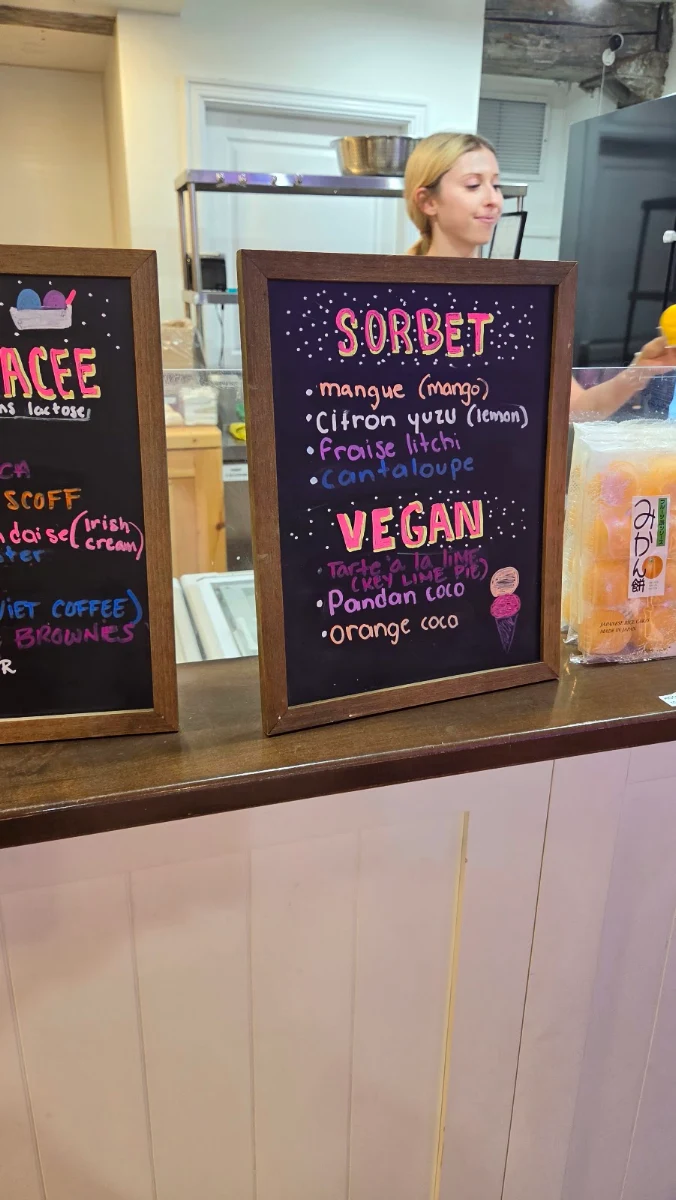 ACEE
ns lactose)
CA
SCOFF
ndaise (irish cream)
ster
VIET COFFEE)
BROWNIES
R
SORBET
• mangue (mango)
• Citron yuzu (lemon)
• Fraise litchi
• cantaloupe
VEGAN
• Tarte a la lime
(KEY LIME PIE)
• Pandan coco
• orange coco
みかん餅
JAPANESE RICE CAKE
MADE IN JAPAN